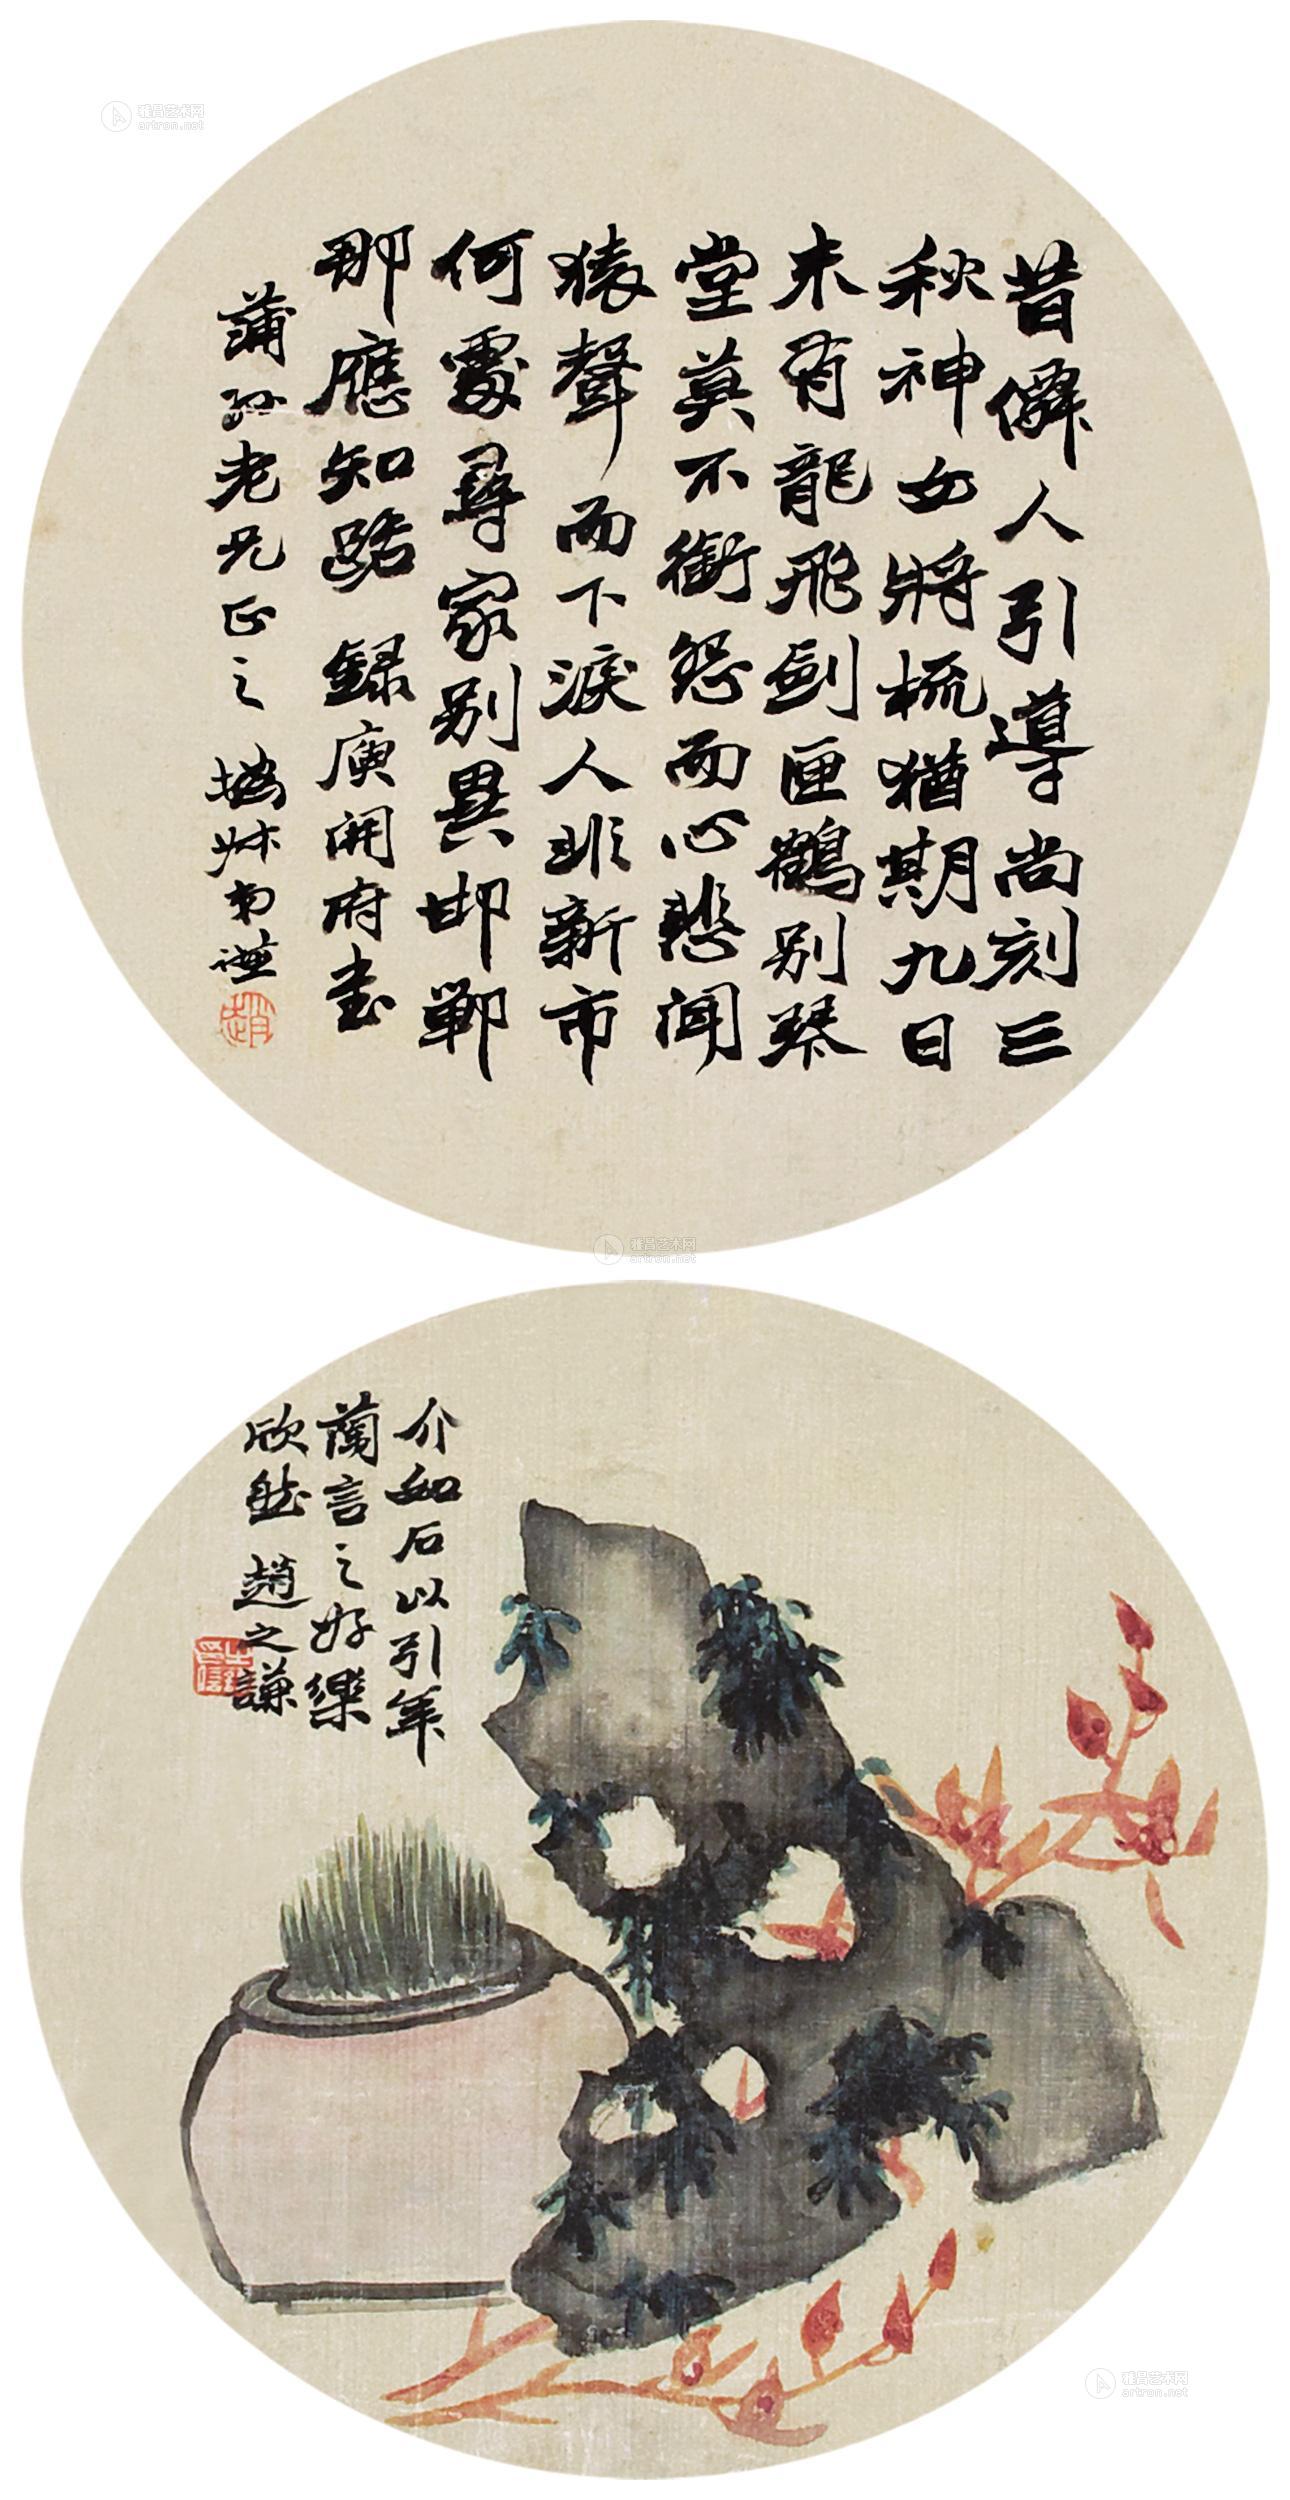 雅昌艺术网
artron.net
昔僊人引導尚刻三
秋神女將梳猶期九日
未有龍飛劍匣鶴别琴
堂莫不銜怨而心悲聞
猿聲而下淚人非新市
何處尋家别異邯鄲
那應知路 録庾開府書
老兄正之 弟
趙
雅昌艺术网
artron.net
介如石以引年
蘭言之好樂
欣然 趙之謙
雅昌艺术网
artron.net